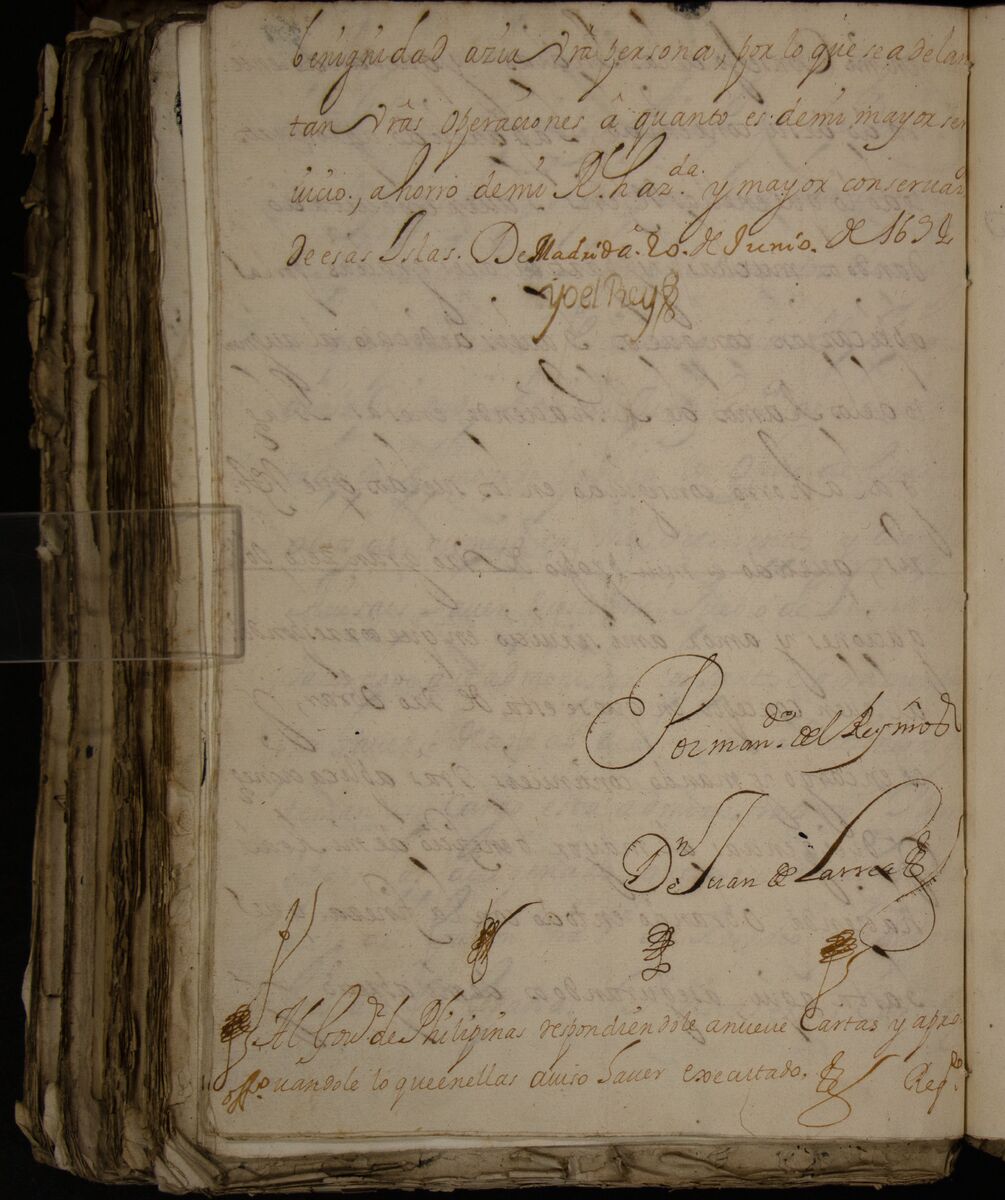 benignidad azia vrâ persona, por lo que se adelan
tan vrâs operaciones â quanto es demi mayor ser
uicio, ahorro demi Rl. haz.da y mayor conseruaz.n
de esas Islas. De Madrid â 20. de Junio. de 1692
yo el Rey
Por man.do del Rey nrô s.r
Dn Juan de Larrea
Al Gou.r de Philipinas respondiendole anueue Cartas y apro
off.o uandole lo queenellas auiso hauer executado. Reg.do